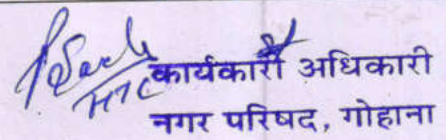 कार्यकारी अधिकारी
नगर परिषद, गोहाना